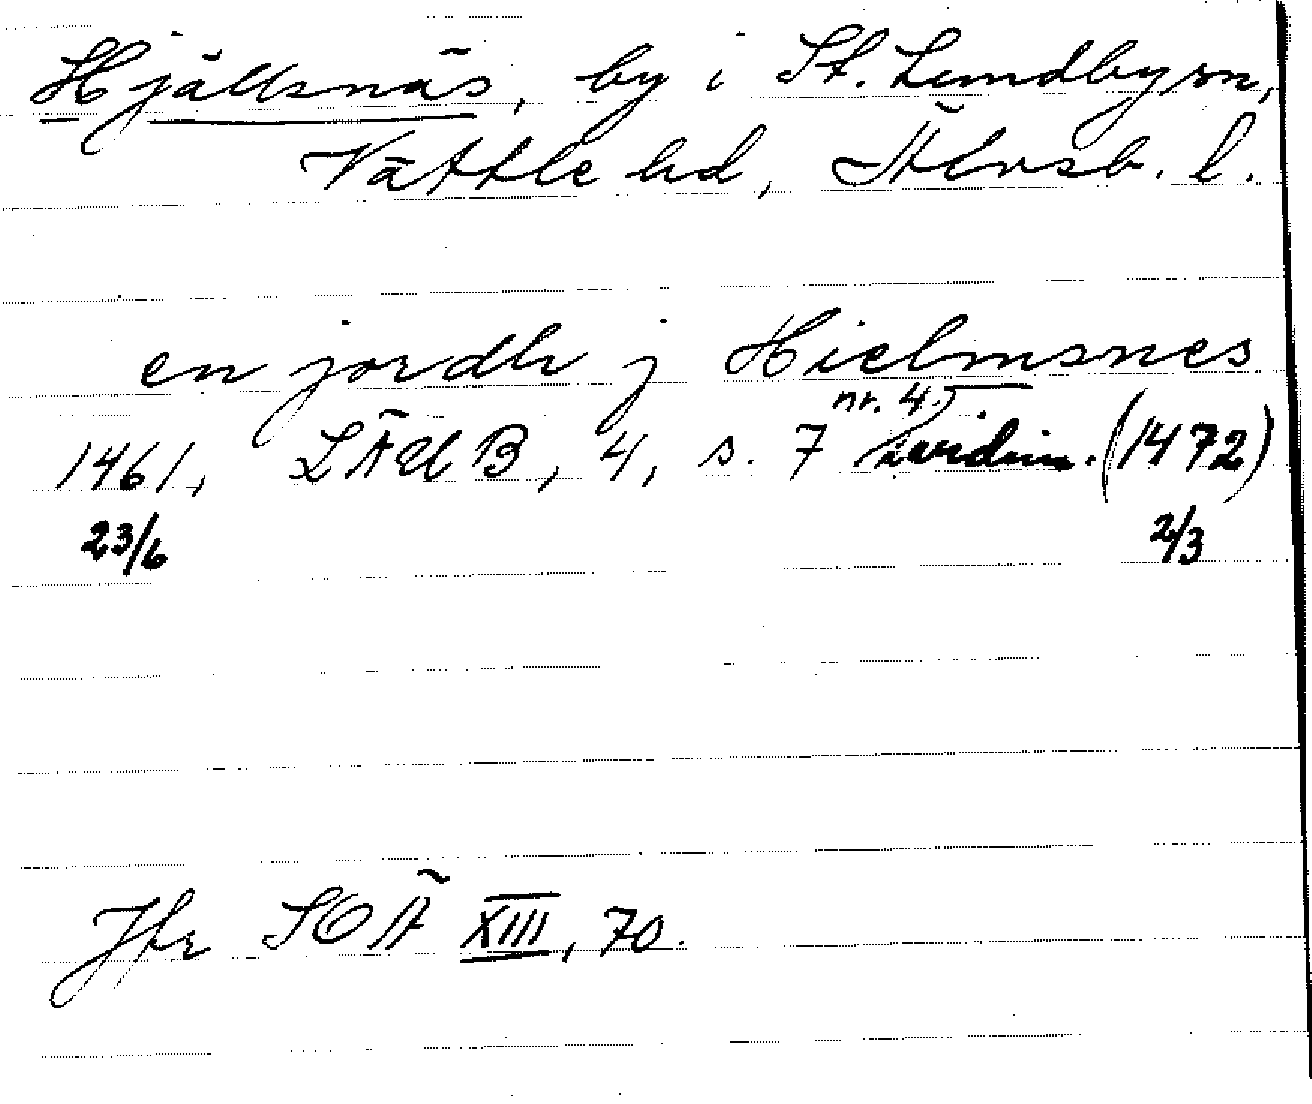 Hjällsnäs, by i St. Lundby sn,
Vättle hd, Älvsb. l.
en jordh j Hielmsnes
nr. 4.
1461, LÄUB, 4, s. 7 vidim. (1472)
23/6 2/3
Jfr SOÄ XIII, 70.